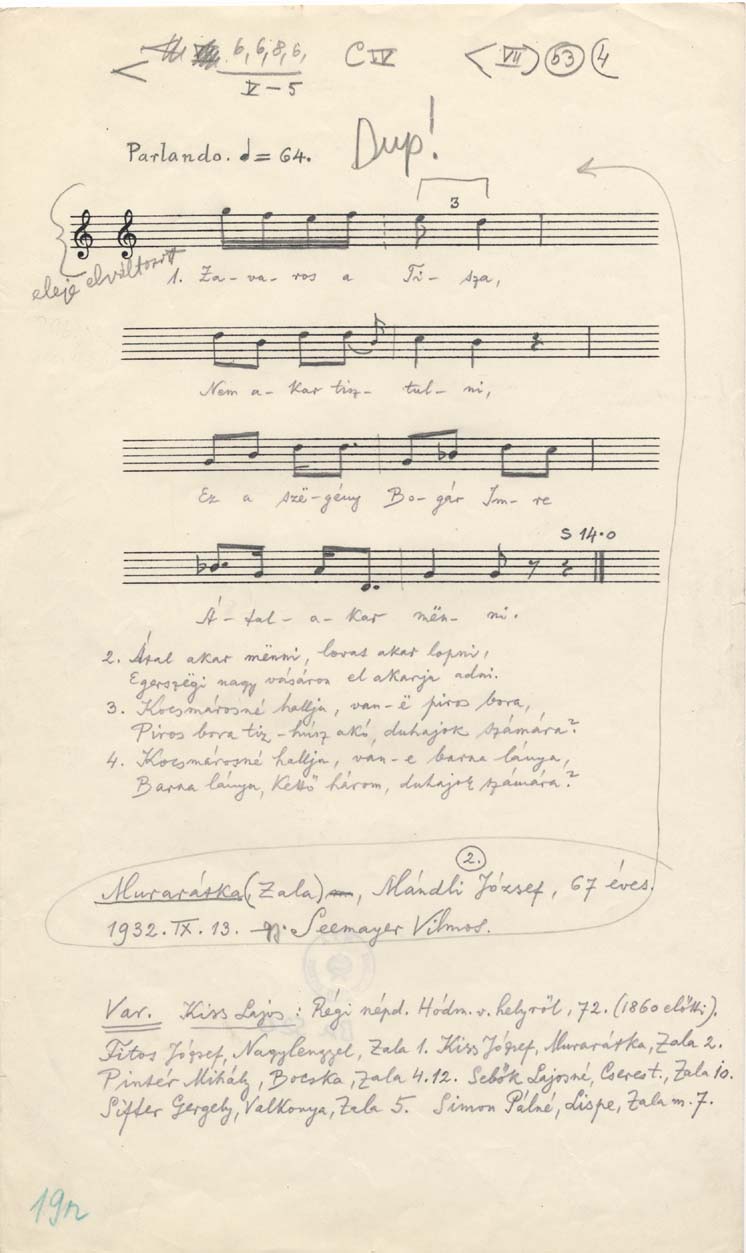 6, 6, 8, 6, C IV < VII) 53 4
V – 5
Dup!
Parlando. = 64.
3
eleje elváltozott
1. Za – va – ros a Ti – sza,
Nem a – kar tisz – tul – ni,
Ez a szë – gény Bo – gár Im – re
S 14.0
Á – tal – a – kar mën – ni.
2. Átal akar mënni, lovat akar lopni,
Egerszëgi nagy vásáron el akarja adni.
3. Kocsmárosné hallja, van-ë piros bora,
Piros bora tiz-húsz akó, duhajok számára?
4. Kocsmárosné hallja, van-e barna lánya,
Barna lánya, kettő három, duhajok számára?
2.
Murarátka (Zala), Mándli József, 67 éves.
1932. IX. 13. gy. Seemayer Vilmos.
Var. Kiss Lajos: Régi népd. Hódm.v.helyről, 72. (1860 előtti).
Fitos József, Nagylengyel, Zala 1. Kiss József, Murarátka, Zala 2.
Pintér Mihály, Bocska, Zala 4.12. Sebők Lajosné, Cserest., Zala 10.
Sifter Gergely, Valkonya, Zala 5. Simon Pálné, Lispe, Zala m. 7.